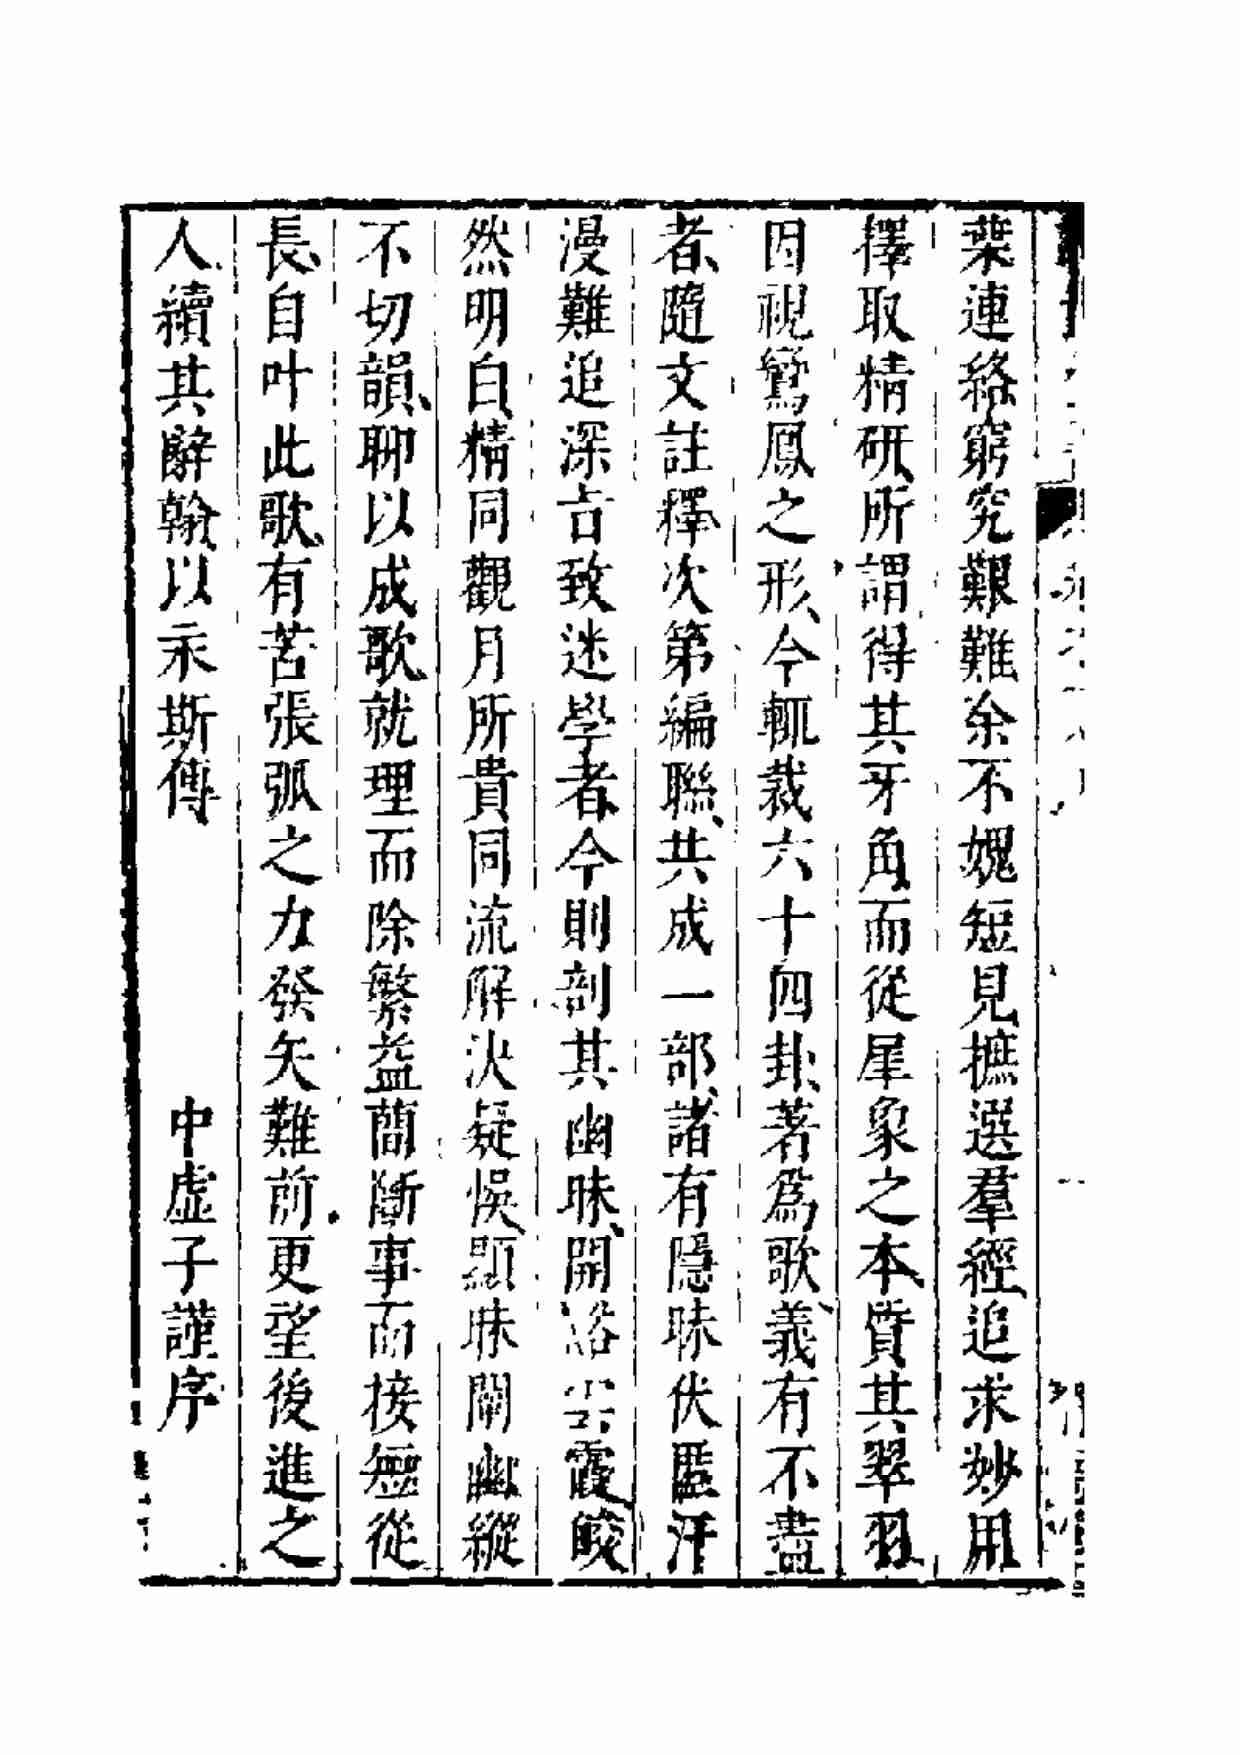 葉連絡、窮究艱難余不媿短見摭選羣經、追求妙用
擇取精研、所謂得其牙角、而從犀象之本、質其翠羽、
因視鸞鳳之形、今輒裁六十四卦、著爲歌、義有不盡
者、隨文註釋、次第編聯、共成一部、諸有隱昧伏匿汗
漫難追深言致迷學者、今則剖其幽昧、開豁雲霞、皎
然明白、精同觀月所貴同流解決疑悞、顯昧闡幽縱
不切韻、聊以成歌、就理而除繁蓋簡斷事而接短從
長、自叶此歌、有苦張弧之力發矢難前、更望後進之
人、續其辭翰、以永斯傳
中虛子謹序